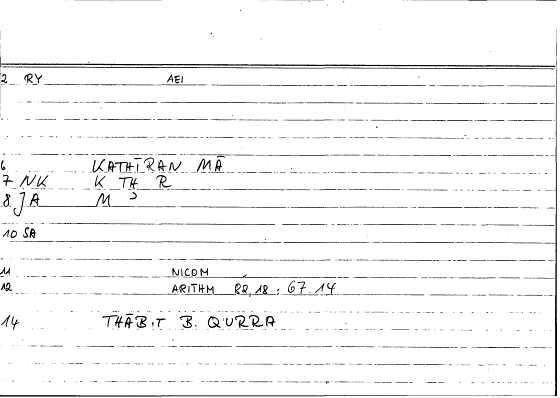 2 RY AEI
6 KATHĪRAN MĀ
7 NK K TH R
8 JA M ʾ
10 SA
11 NICOM
12 ARITHM RR, 18 : 67.14
14 THĀBIT B. QURRA